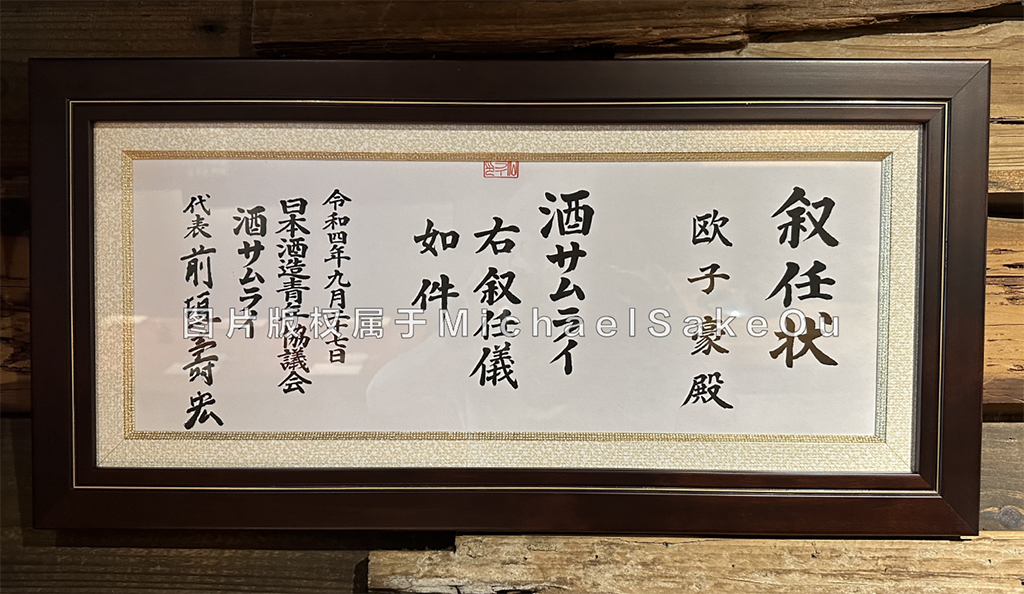 叙任状
欧子豪殿
酒サムライ
右叙任儀
如件
令和四年九月二十七日
日本酒造青年協議会
酒サムライ
代表 前垣壽宏
图片版权属于MichaelSakeOu